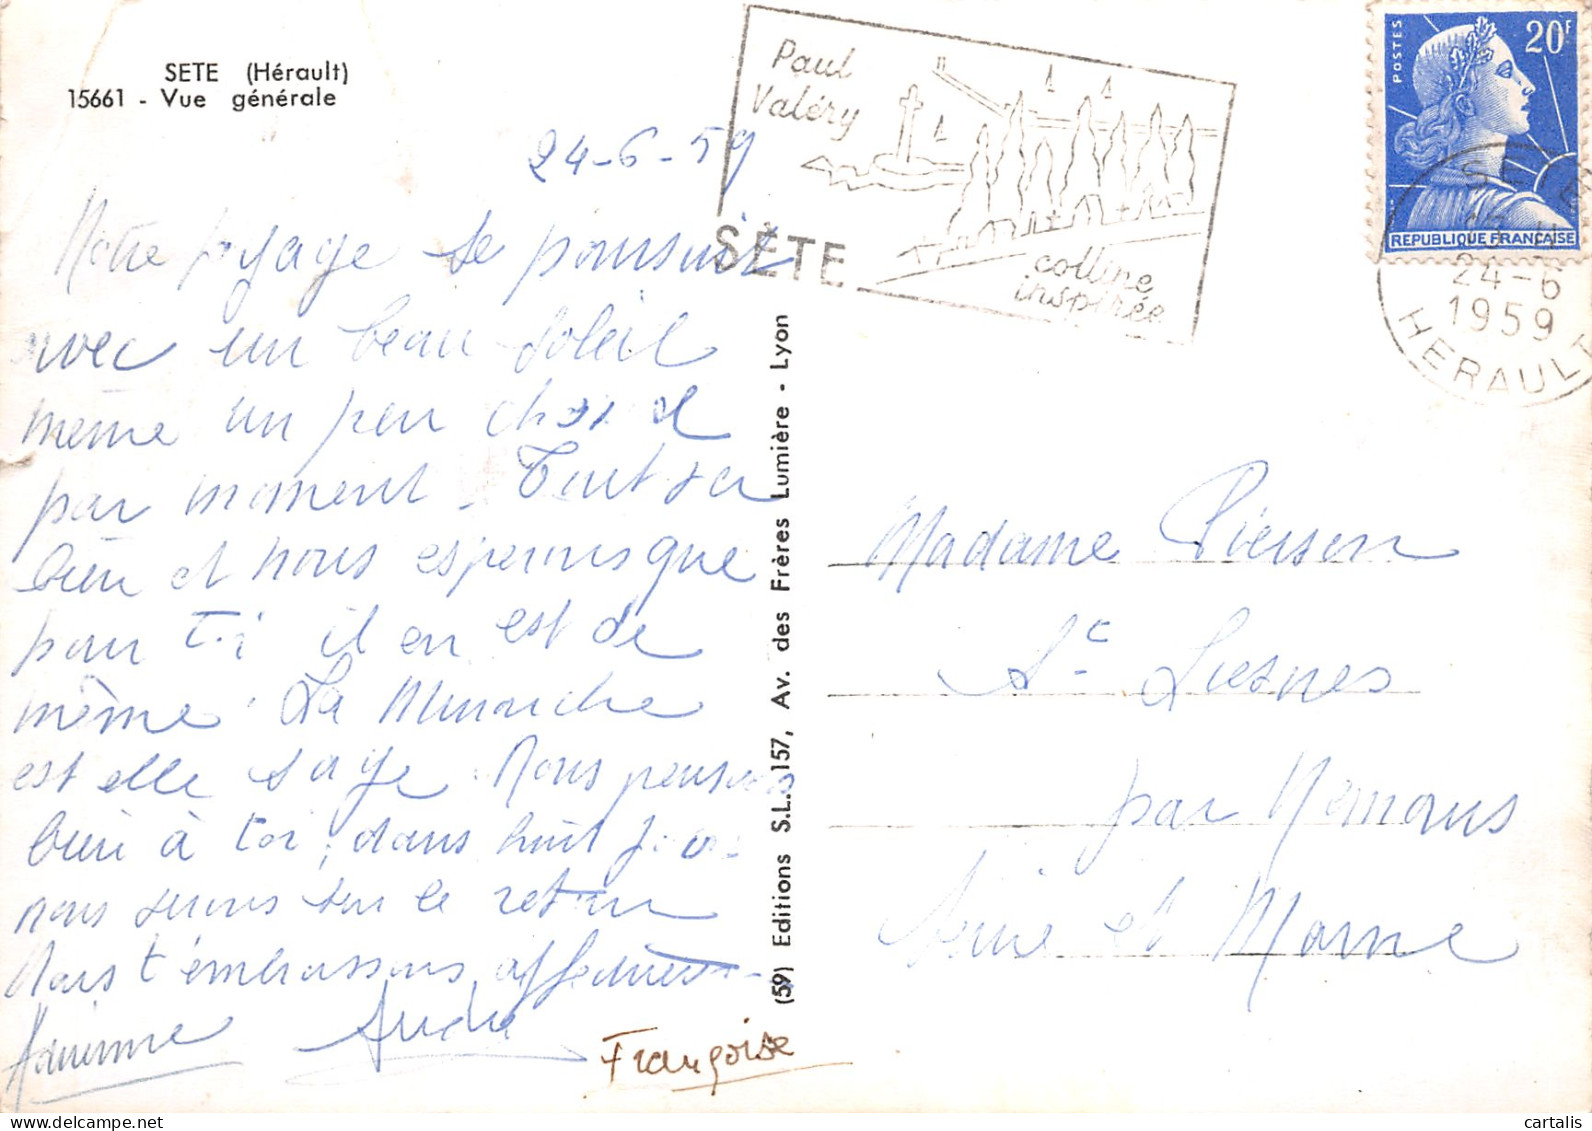 SETE (Hérault)
15661 - Vue générale
24-6-59
Notre voyage se poursuit
avec un beau soleil
même un peu chaud
par moment. Tout va
bien et nous esperons que
pour toi il en est de
même. La
est elle sage. Nous pensons
bien à toi, dans huit jours
nous serons sur le retour
Nous t'embrassons
André
Françoise
(59) Editions S.L. - 157, Av. des Frères Lumière - Lyon
Paul
Valéry
SÈTE
colline
inspirée
POSTES
20F
REPUBLIQUE FRANÇAISE
SETE
24-6
1959
HERAULT
Madame Pierson
St Liesnes
par
Seine et Marne
cartalis